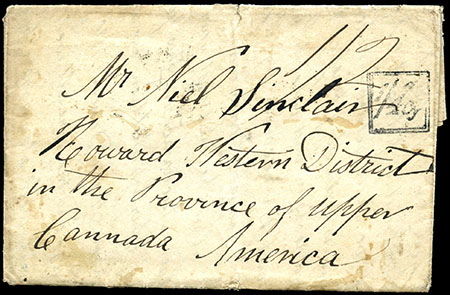 1/2
Mr Niel Sinclair
Howard Western District
in the Province of upper
Cannada America